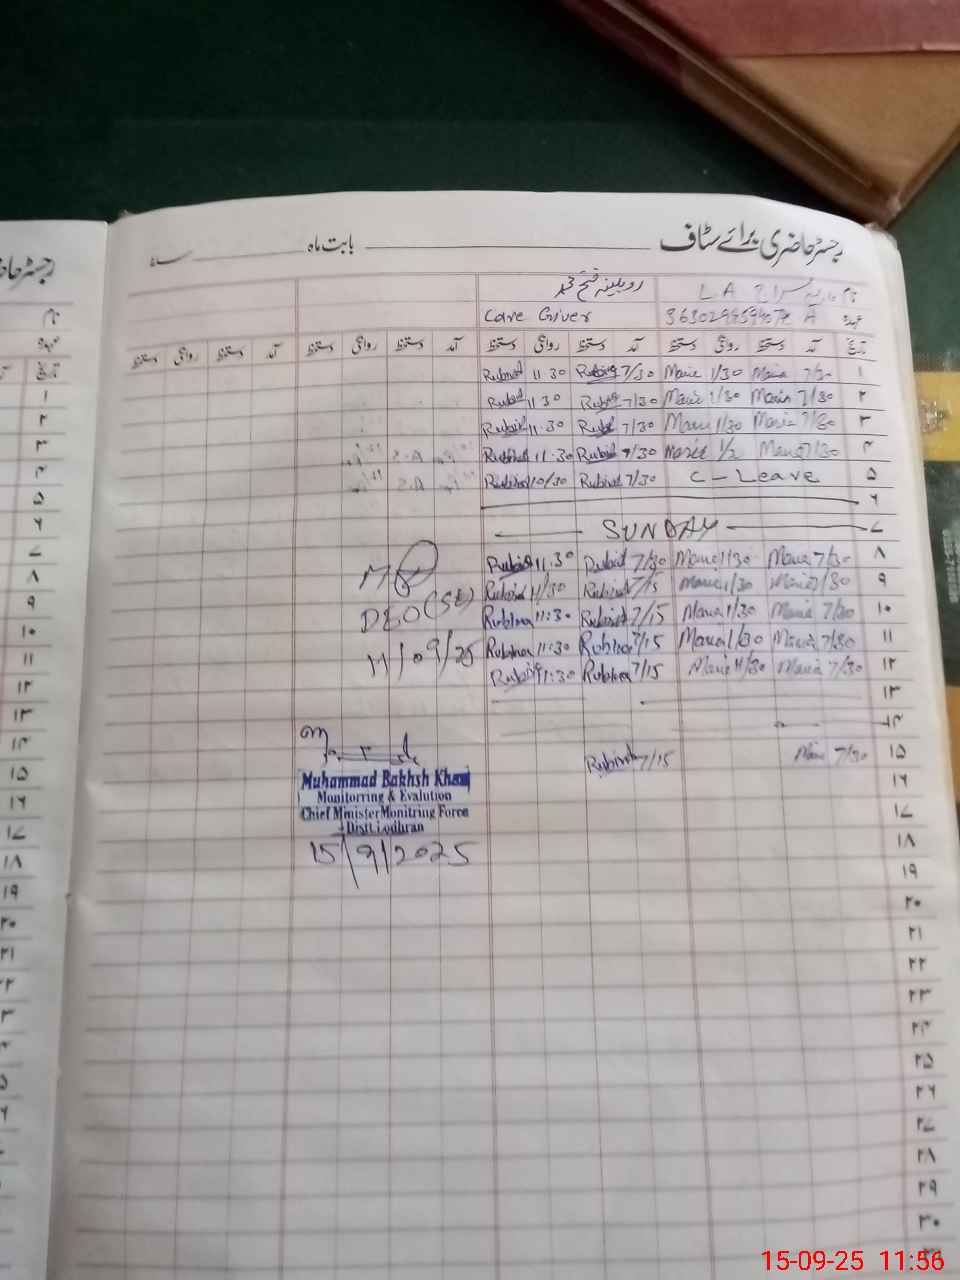 رجسٹر حاضری برائے سٹاف بابت ماہ سنہ
نام ماریہ سراج L.A روبینہ فتح محمد
عہدہ Care Giver
تاریخ آمد دستخط روانگی دستخط آمد دستخط روانگی دستخط آمد دستخط روانگی دستخط آمد دستخط روانگی دستخط
۱ 7/30 Maria 1/30 Maria 7/30 Rubina 11.30 Rubina
۲ 7/30 Maria 1/30 Maria 7/30 Rubina 11.30 Rubina
۳ 7/30 Maria 1/30 Maria 7/30 Rubina 11.30 Rubina
۴ 7/30 Maria Maria 7/30 Rubina 11.30 Rubina
۵ C-Leave 7/30 Rubina 10/30 Rubina
۶
۷ SUNDAY
۸ 7/30 Maria 1/30 Maria 7/30 Rubina 11.30 Rubina
۹ 7/30 Maria 1/30 Maria 7/15 Rubina 11/30 Rubina
۱۰ 7/30 Maria 1/30 Maria 7/15 Rubina 11:30 Rubina
۱۱ 7/30 Maria 1/30 Maria 7/15 Rubina 11:30 Rubina
۱۲ 7/30 Maria 11/30 Maria 7/15 Rubina 11:30 Rubina
۱۳
۱۴
۱۵ 7/30 Maria 7/15 Rubina
۱۶
۱۷
۱۸
۱۹
۲۰
۲۱
۲۲
۲۳
۲۴
۲۵
۲۶
۲۷
۲۸
۲۹
۳۰
DEO(SE)
11/09/25
Muhammad Bakhsh Khan
Monitorring & Evalution
Chief Minister Monitring Force
Distt.Lodhran
15/9/2025
15-09-25 11:56